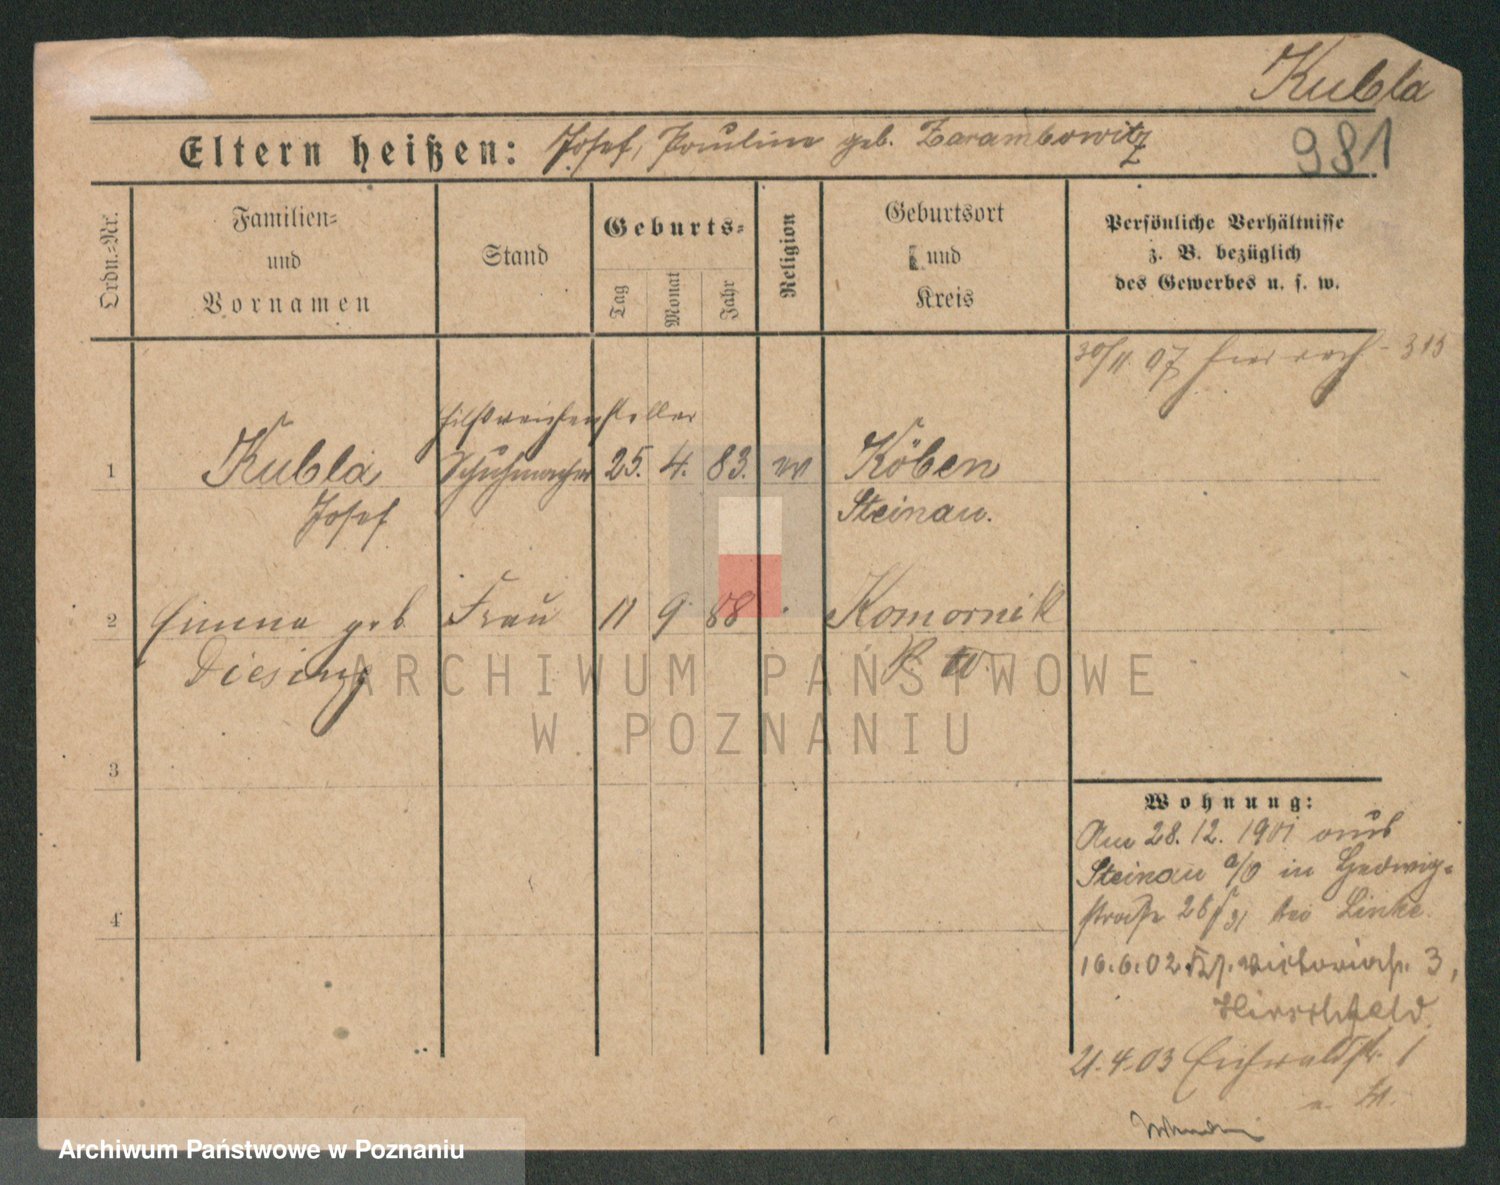 Kubla
981
Eltern heißen: Josef, Pauline geb. Zarambowitz
Ordn.-Nr.
Familien-
und
Vornamen
Stand
Geburts-
Tag
Monat
Jahr
Religion
Geburtsort
und
Kreis
Persönliche Verhältnisse
z. B. bezüglich
des Gewerbes u. s. w.
30/11. 07 - 315
Hilfsweichensteller
1 Kubla Schuhmacher 25. 4. 83. Köben
Josef Steinau.
2 Emma geb Frau 11 9 88 Komornik
Diesing P. W.
3
4
Wohnung:
Am 28. 12. 1901 aus
Steinau a/O in Hedwig-
straße 28 bei Linke.
16.6.02 Victoriastr. 3,
Hirschfeld
21.4.03 Eichwaldstr. 1
ARCHIWUM PAŃSTWOWE
W POZNANIU
Archiwum Państwowe w Poznaniu